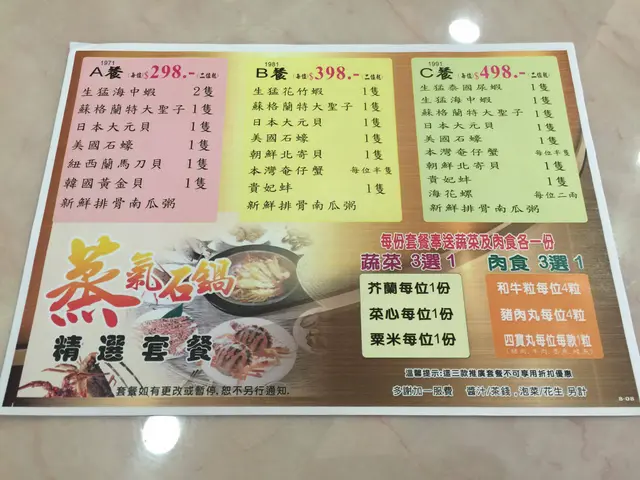 1971
A餐(每位)$298.-(二位起)
生猛海中蝦 2隻
蘇格蘭特大聖子 1隻
日本大元貝 1隻
美國石蠔 1隻
紐西蘭馬刀貝 1隻
韓國黃金貝 1隻
新鮮排骨南瓜粥
1981
B餐(每位)$398.-(二位起)
生猛花竹蝦 1隻
蘇格蘭特大聖子 1隻
日本大元貝 1隻
美國石蠔 1隻
朝鮮北寄貝 1隻
本灣奄仔蟹 每位半隻
貴妃蚌 1隻
新鮮排骨南瓜粥
1991
C餐(每位)$498.-(二位起)
生猛泰國尿蝦 1隻
生猛海中蝦 1隻
蘇格蘭特大聖子 1隻
日本大元貝 1隻
美國石蠔 1隻
本灣奄仔蟹 每位半隻
朝鮮北寄貝 1隻
貴妃蚌 1隻
海花螺 每位二兩
新鮮排骨南瓜粥
蒸氣石鍋
精選套餐
套餐如有更改或暫停,恕不另行通知.
每份套餐奉送蔬菜及肉食各一份
蔬菜 3選1
芥蘭每位1份
菜心每位1份
粟米每位1份
肉食 3選1
和牛粒每位4粒
豬肉丸每位4粒
四寶丸每位每款1粒
溫馨提示:這三款推廣套餐不可享用折扣優惠
多謝加一服費 醬汁/茶錢,泡菜/花生 另計